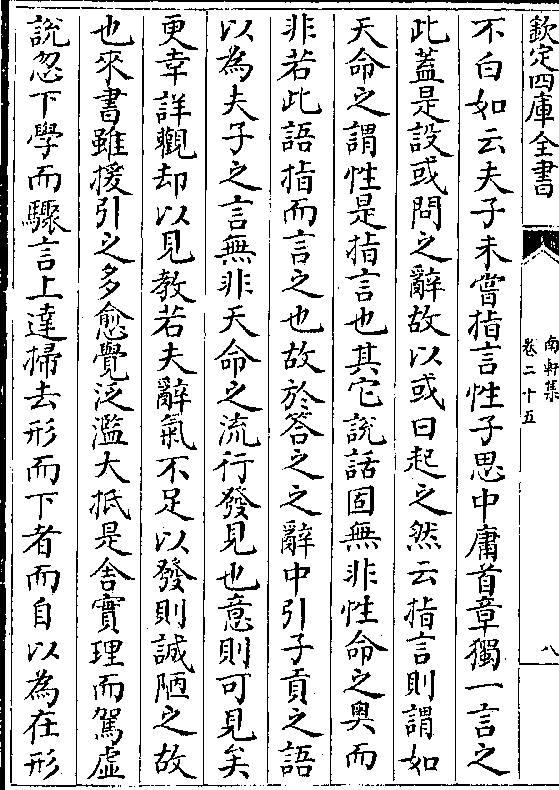 欽定四庫全書
南軒集
卷二十五
八
不白如云夫子未嘗指言性子思中庸首章獨一言之
此蓋是設或問之辭故以或曰起之然云指言則謂如
天命之謂性是指言也其它說話固無非性命之奧而
非若此語指而言之也故於答之之辭中引子貢之語
以為夫子之言無非天命之流行發見也意則可見矣
更幸詳觀却以見教若夫辭氣不足以發則誠陋之故
也來書雖援引之多愈覺泛濫大抵是舍實理而駕虛
說忽下學而驟言上達掃去形而下者而自以為在形